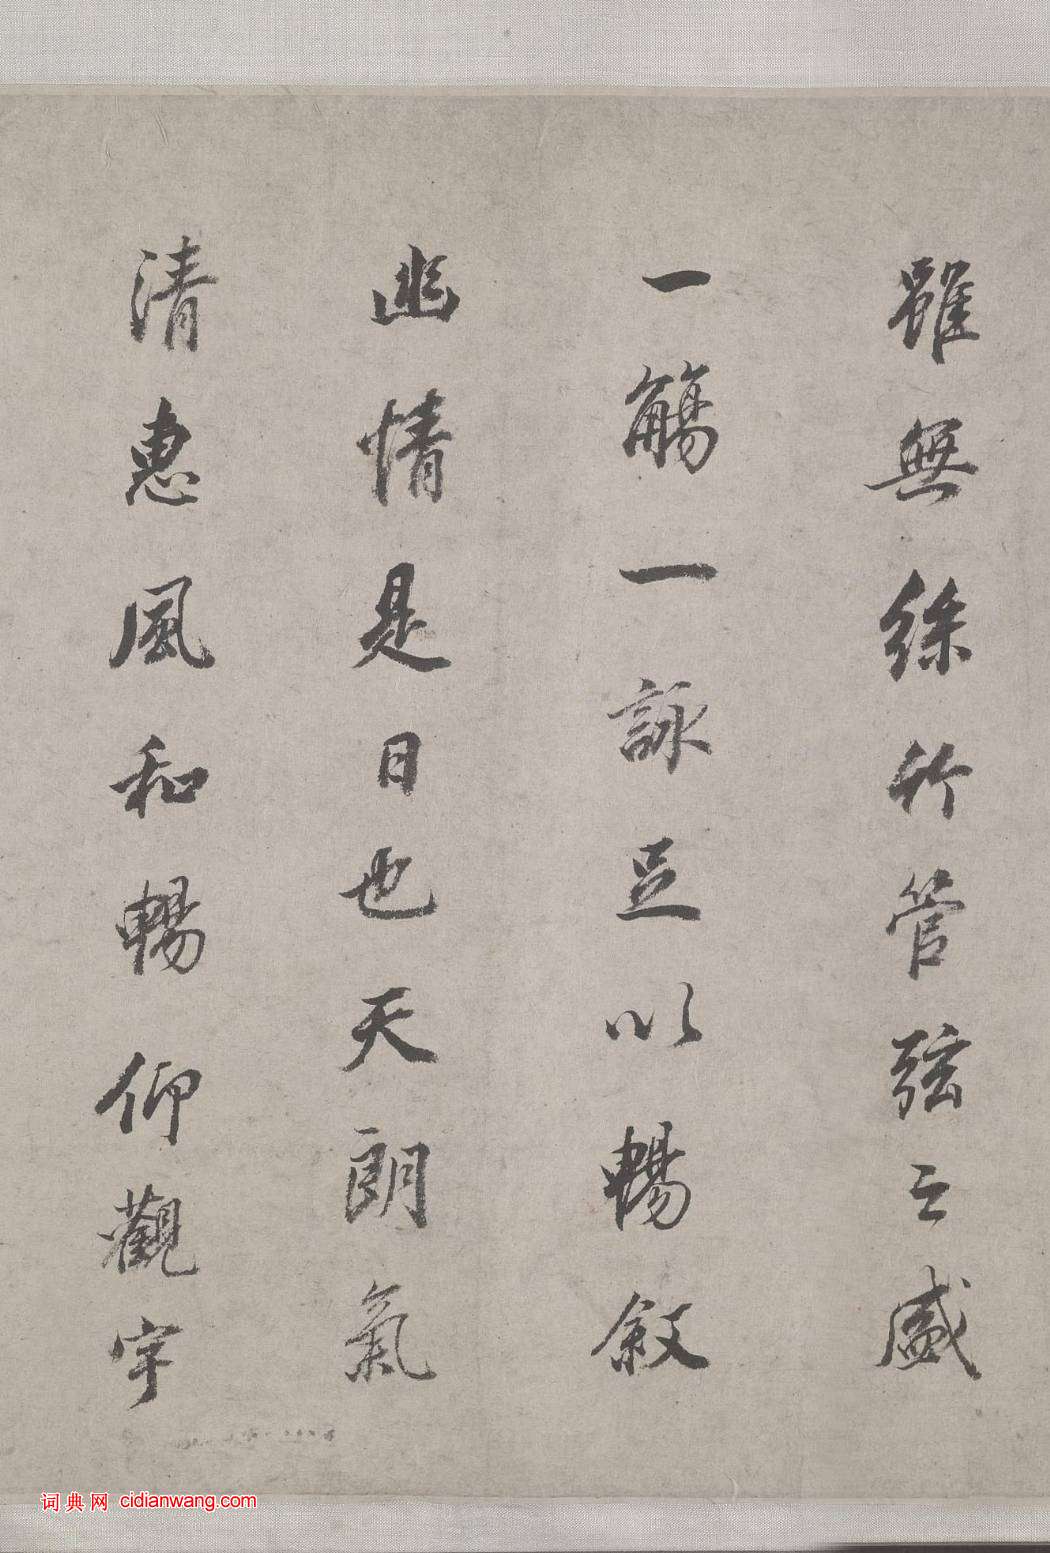 雖無絲竹管弦之盛
一觴一詠足以暢敘
幽情是日也天朗氣
清惠風和暢仰觀宇
词典网 cidianwang.com